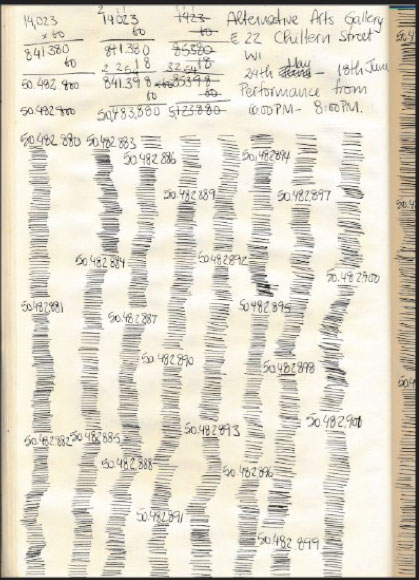 14,023
x 60
841380
60
50.482.800
14023
60
841380
18
841398
60
50,483,880
1423
60
85380
18
85398
60
5123880
Alternative Arts Gallery
E 22 Chiltern Street
W1
24th May - 18th June
Performance from
6:00PM - 8:00PM.
50.482880
50.482881
50.482882
50.482883
50.482884
50.482885
50.482886
50.482887
50.482888
50.482889
50.482890
50.482891
50.482892
50.482893
50.482894
50.482895
50.482896
50.482897
50.482898
50.482899
50.482900
50.482901